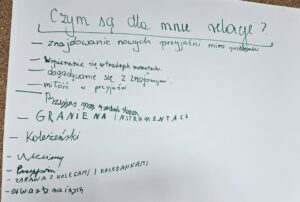 Czym są dla mnie relacje?
— znajdowanie nowych przyjaźni mimo
— Wspieranie się w trudnych momentach.
— dogadywanie się z znajomymi
— miłość w przyjaźni
— GRANIE NA INSTRUMENTACH
— Koleżeński
—
— Przyjaźń
— ZABAWA Z KOLEGAMI I KOLEŻANKAMI
— otwarty na innych